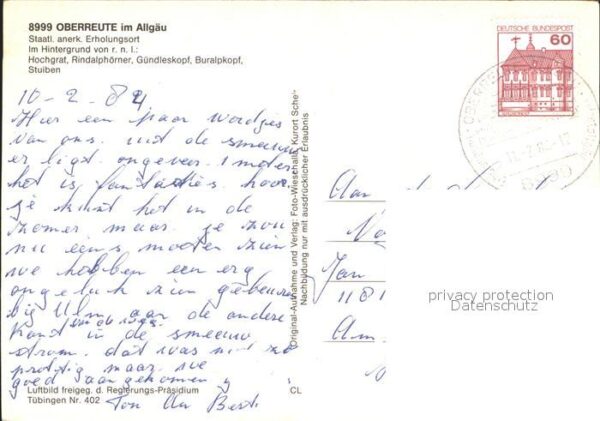 8999 OBERREUTE im Allgäu
Staatl. anerk. Erholungsort
Im Hintergrund von r. n. l.:
Hochgrat, Rindalphörner, Gündleskopf, Buralpkopf,
Stuiben
DEUTSCHE BUNDESPOST
60
10-2-84
Hier een paar woordjes
van ons. uit de sneeuw
er ligt ongeveer 1 meter
het is fantasties hoor
je kunt het in de
zomer maar je zou
nu eens moeten zien
we hebben een erg
ongeluk zien gebeuren
bij Ulm aan de andere
kant in de sneeuw
storm. dat was niet zo
prettig maar we
goed aangekomen
Luftbild freigeg. d. Regierungs-Präsidium
Tübingen Nr. 402
Ton An Bert
CL
Original-Aufnahme und Verlag: Foto-Wieschalla, Kurort Sche
Nachbildung nur mit ausdrücklicher Erlaubnis
Aan
Jan
1181
Am
privacy protection
Datenschutz